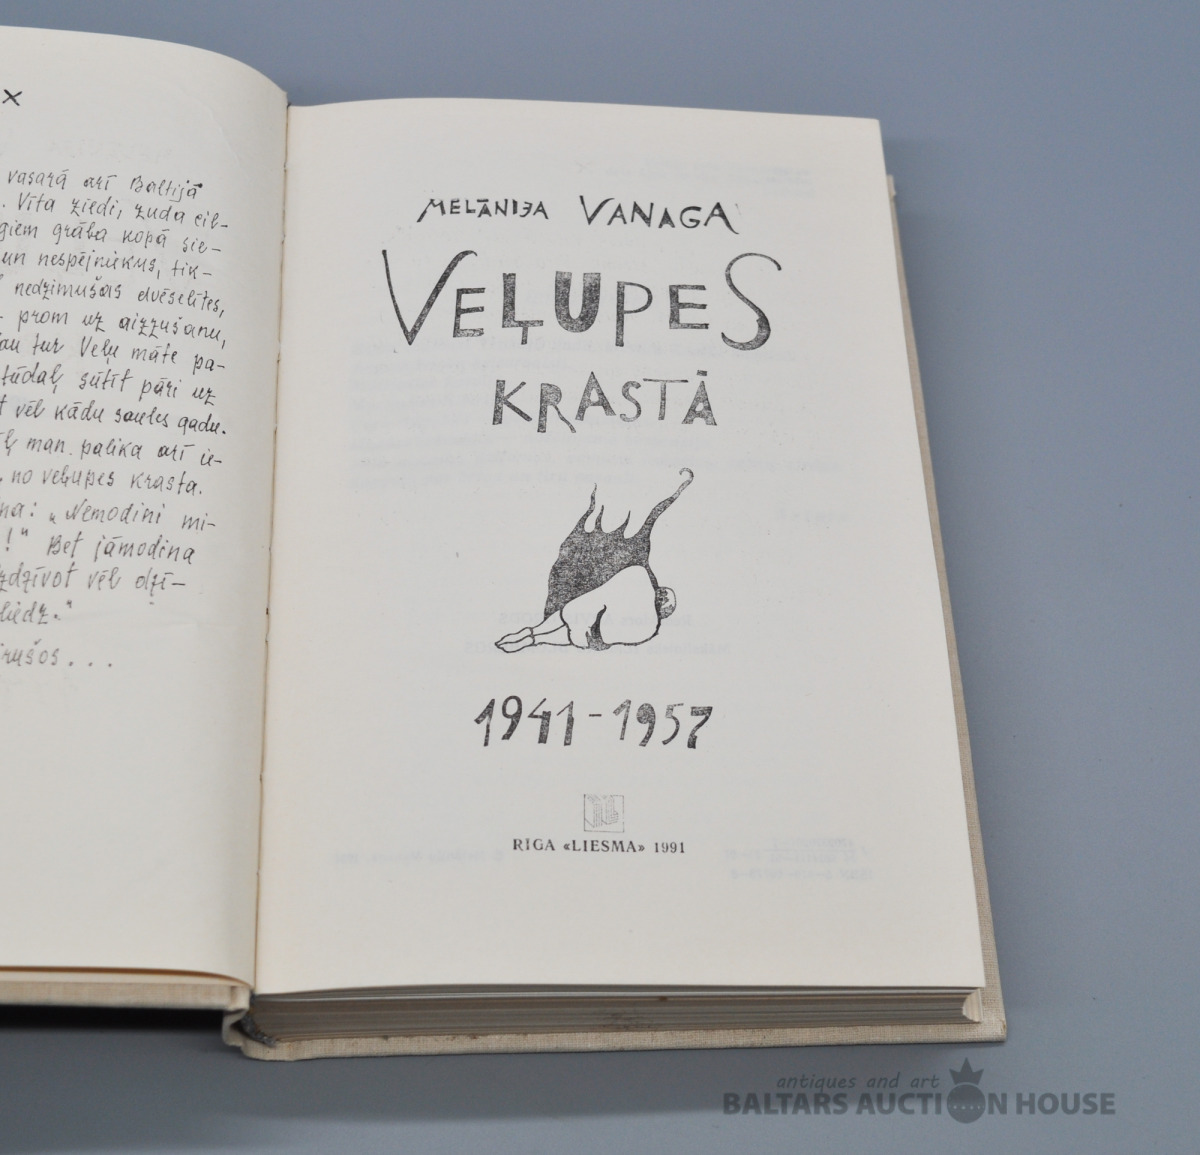 x
vasarā arī Baltijā
. Vīta ziedi, zuda cil-
grāba kopā sie-
un nespējniekus, tik-
nedzimušās dvēselītes,
prom uz aizzušanu,
tur Veļu māte pa-
sūtīt pāri uz
vēl kādu saules gadu.
man palika arī ie-
no veļupes krasta.
„Nemodini mi-
!" Bet jāmodina
vēl dzī-
MELĀNIJA VANAGA
VEĻUPES
KRASTĀ
1941-1957
RĪGA «LIESMA» 1991
antiques and art
BALTARS AUCTION HOUSE